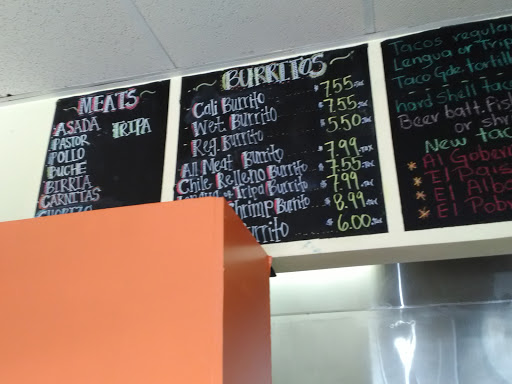 MEATS
ASADA TRIPA
PASTOR
POLLO
BUCHE
BIRRIA
CARNITAS
CHORIZO
BURRITOS
Cali Burrito $7.55+tax
Wet Burrito $7.55+tax
Reg. Burrito $5.50+tax
All Meat Burrito $7.99+tax
Chile Relleno Burrito $7.55+tax
Lengua or Tripa Burrito $7.99+tax
Shrimp Burrito $8.99+tax
Burrito $6.00+tax
Tacos regular
Lengua or Trip
Taco Gde. tortill
hard shell tac
Beer batt. Fis
or sh
New tac
* Al Gober
* El Pais
* El Alba
* El Pob